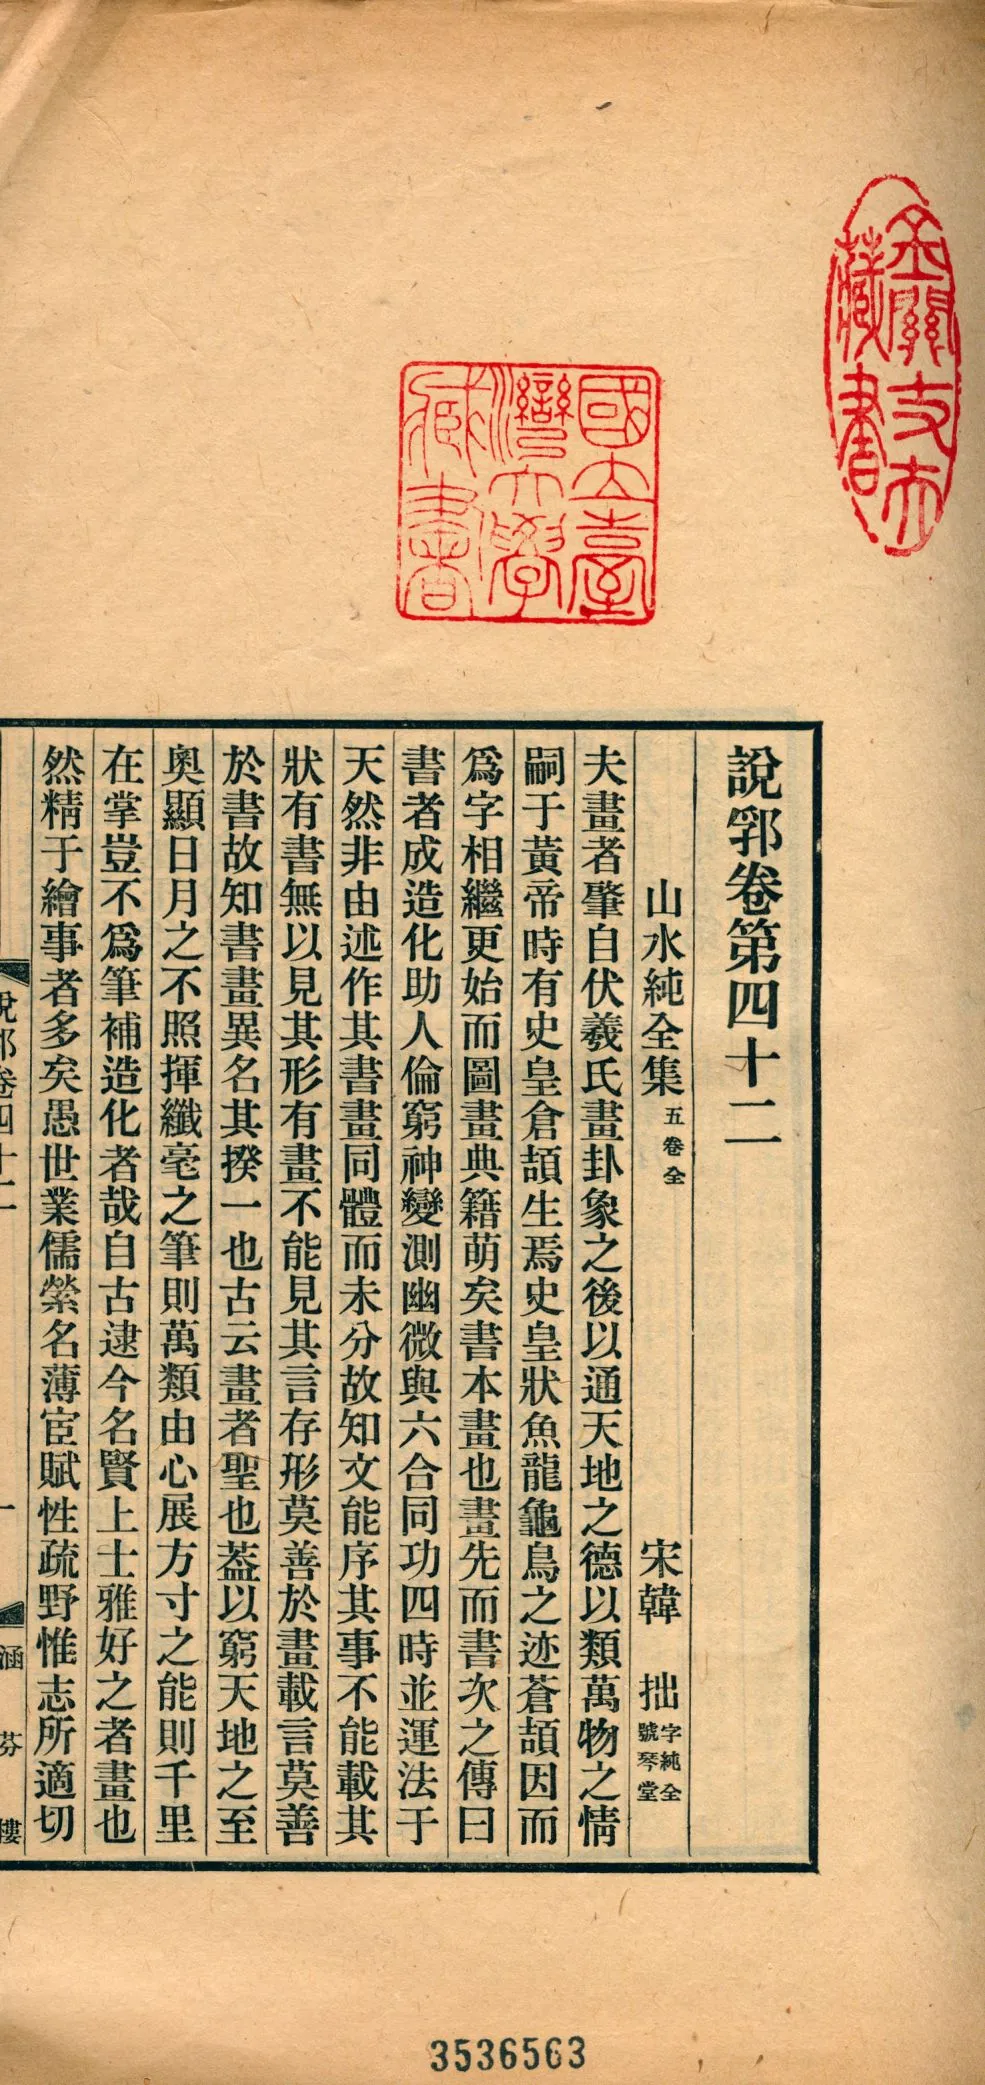 說郛卷第四十二
山水純全集 五卷全 宋韓 拙 字純全 號琴堂
夫畫者肇自伏羲氏畫卦象之後以通天地之德以類萬物之情
嗣于黃帝時有史皇倉頡生焉史皇狀魚龍龜鳥之迹蒼頡因而
爲字相繼更始而圖畫典籍萌矣書本畫也畫先而書次之傳曰
書者成造化助人倫窮神變測幽微與六合同功四時並運法于
天然非由述作其書畫同體而未分故知文能序其事不能載其
狀有書無以見其形有畫不能見其言存形莫善於畫載言莫善
於書故知書畫異名其揆一也古云畫者聖也葢以窮天地之至
奧顯日月之不照揮纖毫之筆則萬類由心展方寸之能則千里
在掌豈不爲筆補造化者哉自古逮今名賢上士雅好之者畫也
然精于繪事者多矣愚世業儒縈名薄宦賦性疏野惟志所適切
說郛卷四十二 一 涵芬樓
國立臺
灣大學
藏書
藏書
3536563